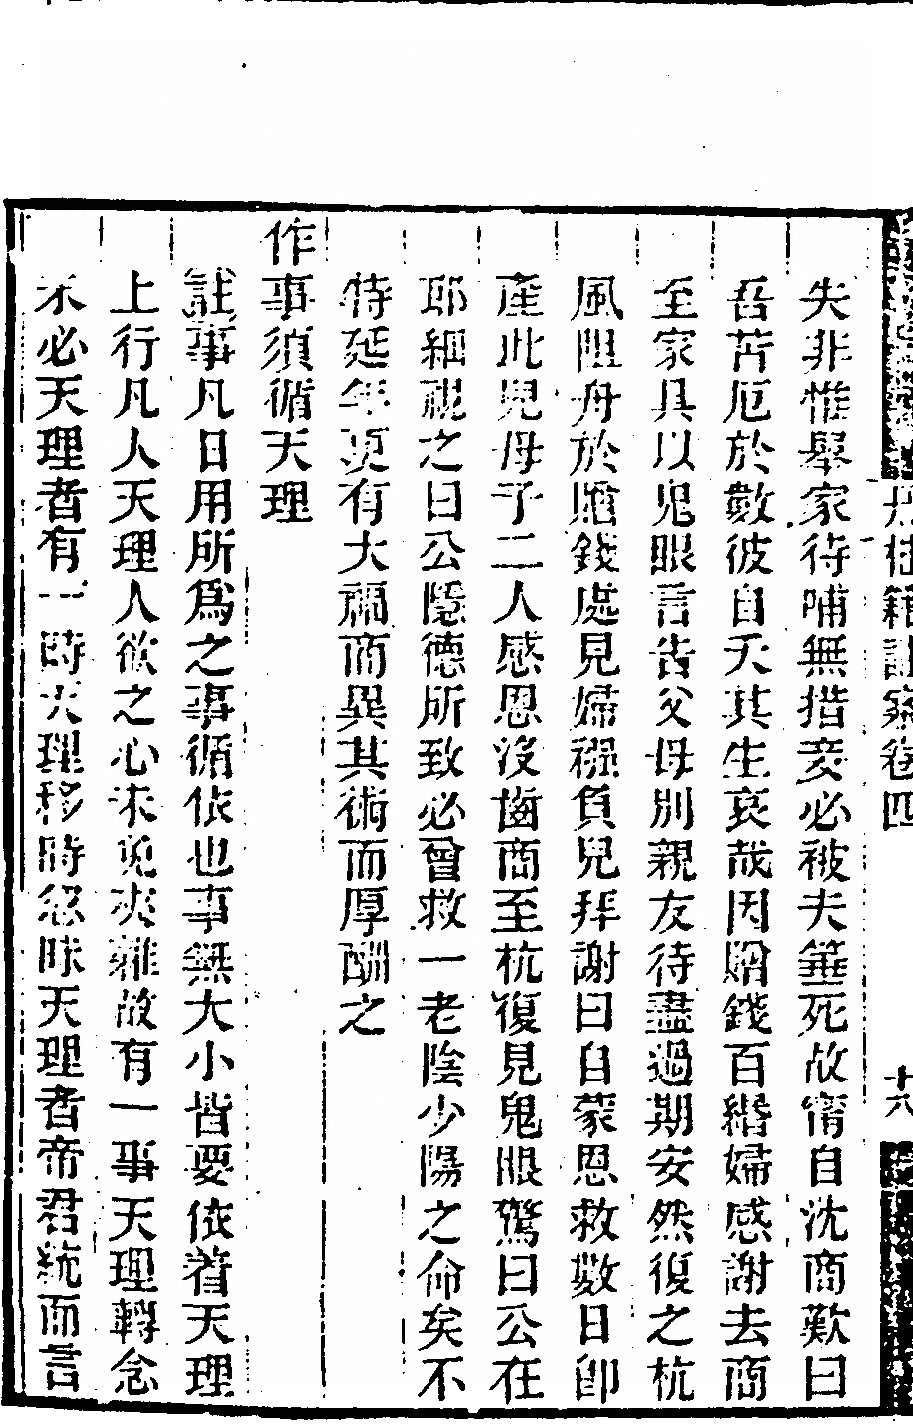 丹桂籍註案卷四
十六
失非惟舉家待哺無措妾必被夫箠死故甯自沈商歎曰
吾苦厄於數彼自夭其生哀哉因贈錢百緡婦感謝去商
至家具以鬼眼言告父母別親友待盡過期安然復之杭
風阻舟於贈錢處見婦襁負兒拜謝曰自蒙恩救數日卽
產此兒母子二人感恩沒齒商至杭復見鬼眼驚曰公在
耶細視之曰公隱德所致必曾救一老陰少陽之命矣不
特延年更有大福商異其術而厚酬之
作事須循天理
註事凡日用所爲之事循依也事無大小皆要依着天理
上行凡人天理人欲之心未免夾雜故有一事天理轉念
不必天理者有一時天理移時忽昧天理者帝君統而言